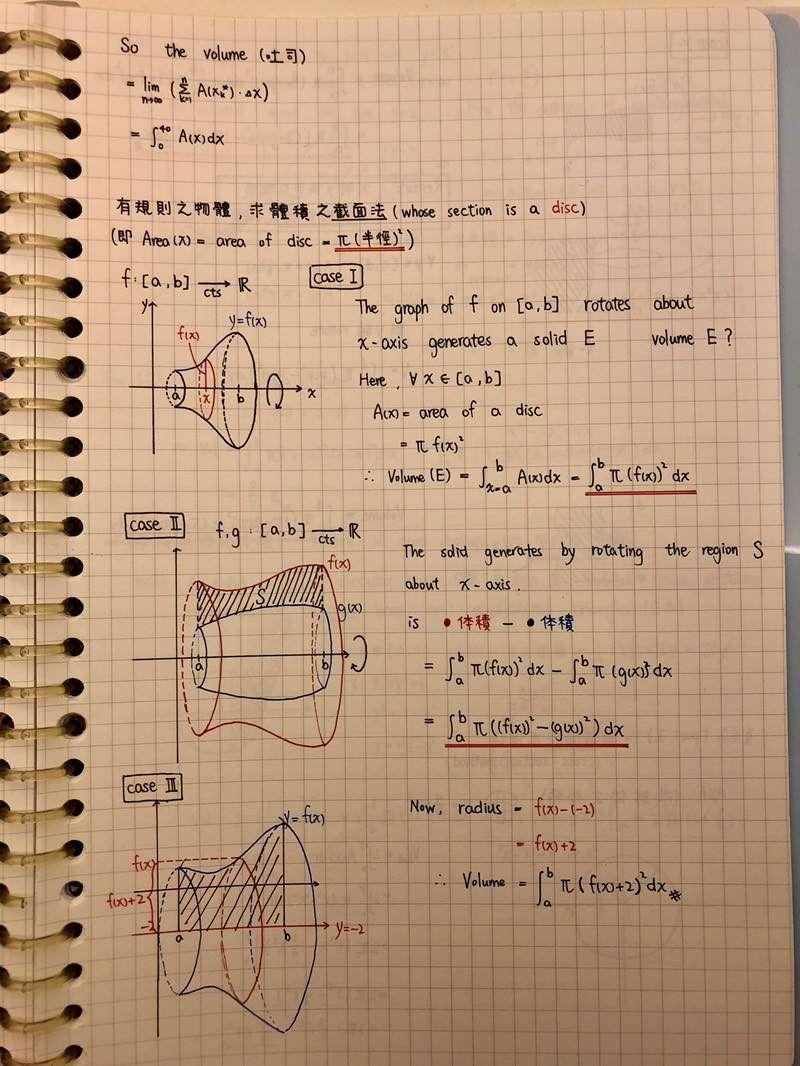 So the volume (吐司)
= lim n→∞ (∑ k=1 n A(xₖ*)·Δx)
= ∫₀⁴⁰ A(x)dx
有規則之物體,求體積之截面法(whose section is a disc)
(即 Area(x) = area of disc = π(半徑)²)
f:[a,b] →cts ℝ
case Ⅰ
The graph of f on [a,b] rotates about
x-axis generates a solid E volume E?
Here, ∀x∈[a,b]
A(x) = area of a disc
= πf(x)²
∴ Volume(E) = ∫ₓ₌ₐᵇ A(x)dx = ∫ₐᵇ π(f(x))²dx
y
f(x)
y=f(x)
a
x
b
x
case Ⅱ
f,g:[a,b] →cts ℝ
The solid generates by rotating the region S
about x-axis.
is ●体積 - ●体積
= ∫ₐᵇ π(f(x))²dx - ∫ₐᵇ π(g(x))²dx
= ∫ₐᵇ π((f(x))²-(g(x))²)dx
f(x)
S
g(x)
a
b
case Ⅲ
Now, radius = f(x)-(-2)
= f(x)+2
∴ Volume = ∫ₐᵇ π(f(x)+2)²dx※
y=f(x)
f(x)
f(x)+2
-2
a
b
y=-2